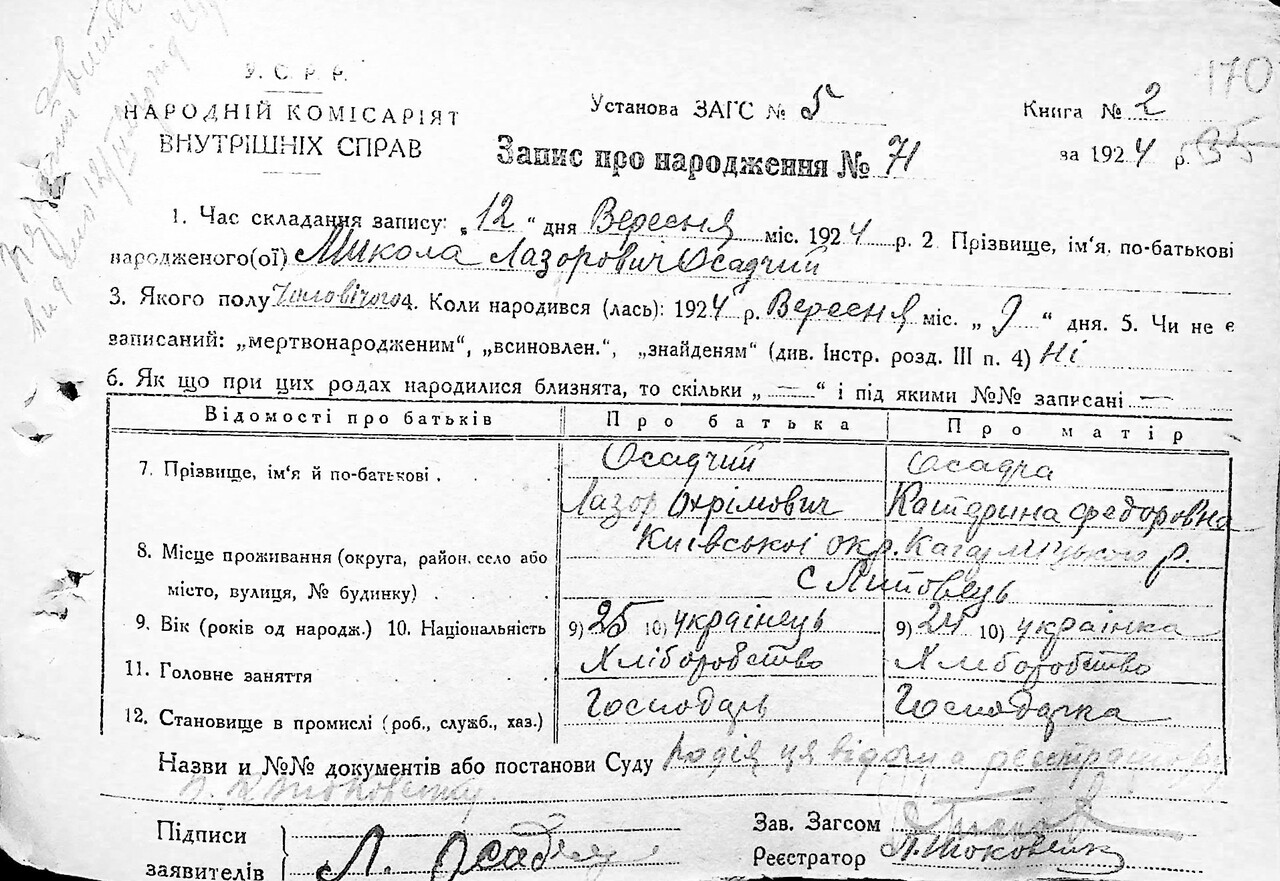 170
У. С. Р. Р.
НАРОДНІЙ КОМІСАРІЯТ
ВНУТРІШНІХ СПРАВ
Установа ЗАГС № 5
Книга № 2
Запис про народження № 71
за 1924 р.
1. Час складання запису: „12“ дня Вересня міс. 1924 р. 2. Прізвище, ім‘я, по-батькові
народженого(ої) Микола Лазорович Осадчий
3. Якого полу Чоловічого 4. Коли народився (лась): 1924 р. Вересня міс. „9“ дня. 5. Чи не є
записаний: „мертвонародженим“, „всиновлен.“, „знайденям“ (див. Інстр. розд. III п. 4) Ні
6. Як що при цих родах народилися близнята, то скільки „—“ і під якими №№ записані —
Відомості про батьків Про батька Про матір
7. Прізвище, ім‘я й по-батькові . Осадчий Осадча
Лазор Охрімович Катерина Федоровна
8. Місце проживання (округа, район, село або Київської окр. Кагарлицького р.
місто, вулиця, № будинку) . С Липовець
9. Вік (років од народж.) 10. Національність 9) 25 10) українець 9) 24 10) українка
11. Головне заняття Хліборобство Хліборобство
12. Становище в промислі (роб., служб., хаз.) Господарь Господарка
Назви и №№ документів або постанови Суду Подія ця відома реєстратору
Підписи
заявителів Л. Осадчий
Зав. Загсом
Реєстратор